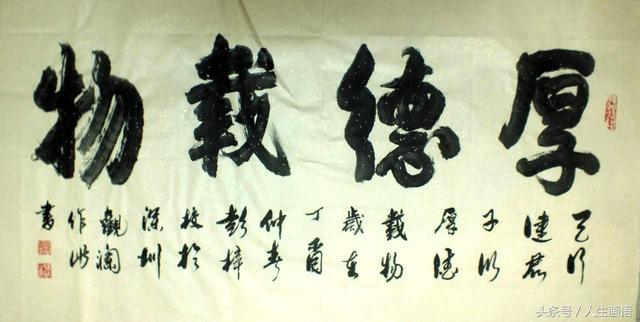 厚德載物
天行
健君
子以
厚德
載物
歲在
丁酉
仲春
彭梓
於
深圳
觀瀾
作此
書
头条号／人生画语